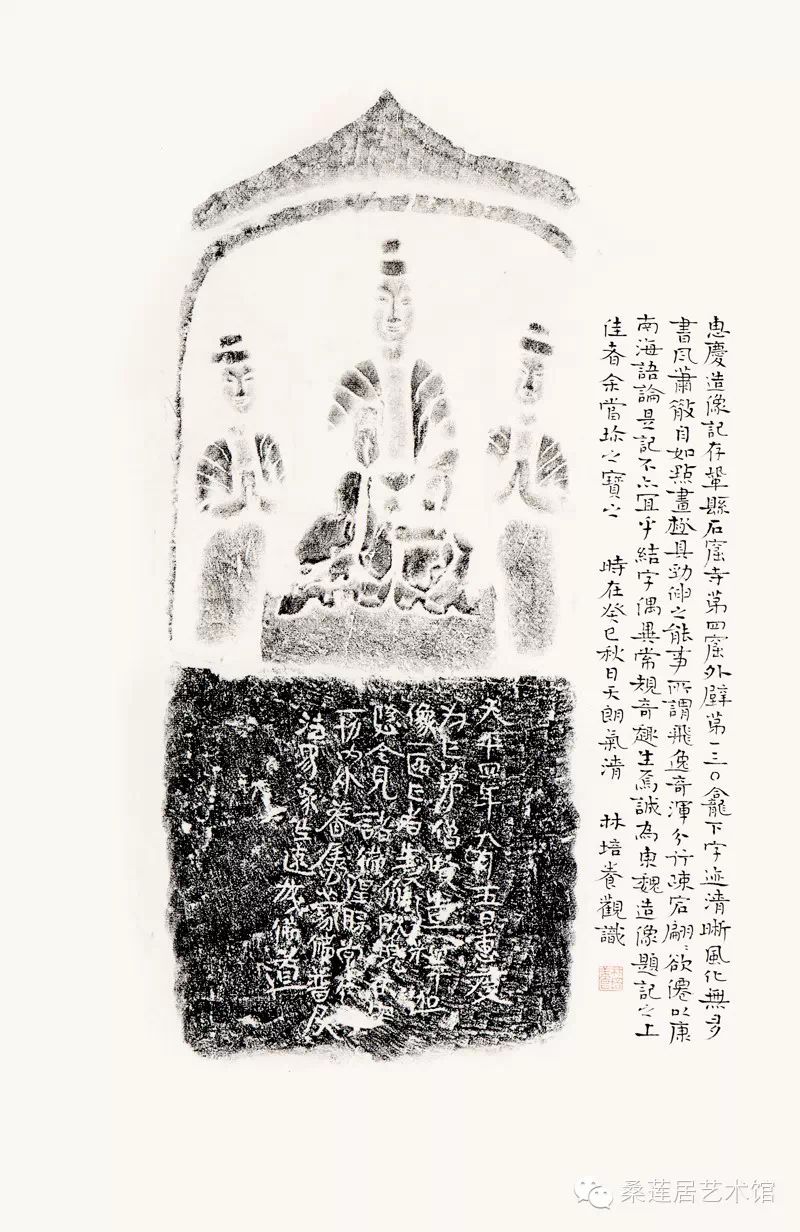 惠慶造像記存鞏縣石窟寺第四窟外壁第一三〇龕下字迹清晰風化無多
書風蕭散自如點畫極具勁俏之能事所謂飛逸奇渾分行疎宕翩〻欲僊以康
南海語論是記不亦宜乎結字偶異常規奇趣生焉誠為東魏造像題記之上
佳者余當珍之寶之 時在癸巳秋日天朗氣清 林培養觀識
天平四年九月五日惠慶
為亡弟僧造
像一區亡者
一形内外眷属
法界眾生速成佛道
桑莲居艺术馆